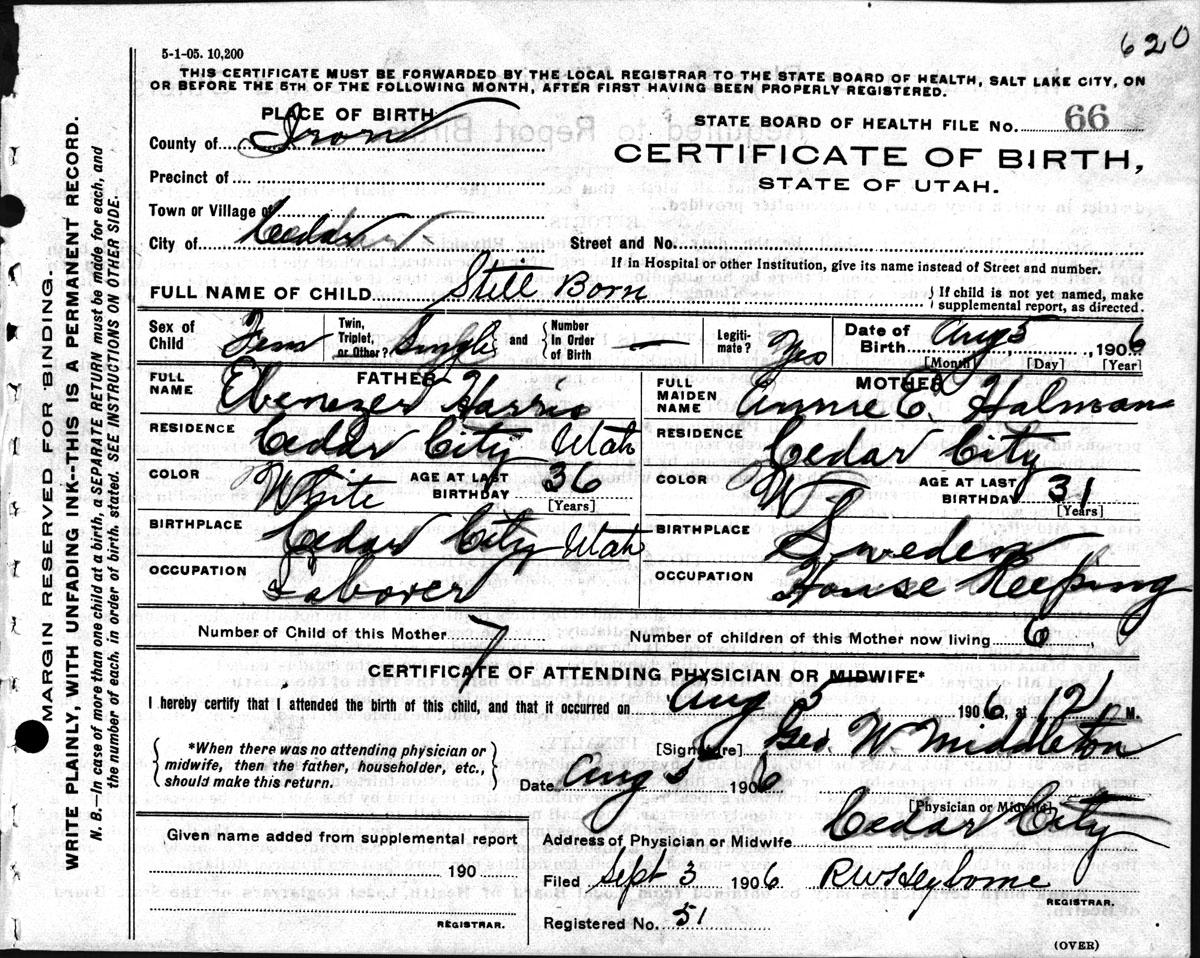 620
5-1-05. 10,200
THIS CERTIFICATE MUST BE FORWARDED BY THE LOCAL REGISTRAR TO THE STATE BOARD OF HEALTH, SALT LAKE CITY, ON
OR BEFORE THE 5TH OF THE FOLLOWING MONTH, AFTER FIRST HAVING BEEN PROPERLY REGISTERED.
PLACE OF BIRTH
STATE BOARD OF HEALTH FILE No. 66
County of Iron
CERTIFICATE OF BIRTH,
STATE OF UTAH.
Precinct of
Town or Village of
City of Cedar
Street and No.
If in Hospital or other Institution, give its name instead of Street and number.
FULL NAME OF CHILD Still Born
{ If child is not yet named, make
supplemental report, as directed.
Sex of Child Fem
Twin, Triplet, or Other? Single and { Number In Order of Birth —
Legiti-mate? Yes
Date of Birth Aug 5, 1906
[Month] [Day] [Year]
FATHER
FULL NAME Ebenezer Harris
RESIDENCE Cedar City Utah
COLOR White AGE AT LAST BIRTHDAY 36
[Years]
BIRTHPLACE Cedar City Utah
OCCUPATION Laborer
MOTHER
FULL MAIDEN NAME Annie E. Halman
RESIDENCE Cedar City
COLOR W AGE AT LAST BIRTHDAY 31
[Years]
BIRTHPLACE Sweden
OCCUPATION House Keeping
Number of Child of this Mother 7
Number of children of this Mother now living 6
CERTIFICATE OF ATTENDING PHYSICIAN OR MIDWIFE*
I hereby certify that I attended the birth of this child, and that it occurred on Aug 5 1906, at 121 M.
{ *When there was no attending physician or
midwife, then the father, householder, etc.,
should make this return. }
[Signature] Geo. W. Middleton
Date Aug 5 1906
[Physician or Midwife]
Given name added from supplemental report
190
REGISTRAR.
Address of Physician or Midwife Cedar City
Filed Sept 3 1906 R W Heyborne
REGISTRAR.
Registered No. 51
(OVER)
MARGIN RESERVED FOR BINDING.
WRITE PLAINLY, WITH UNFADING INK--THIS IS A PERMANENT RECORD.
N. B.—In case of more than one child at birth, a SEPARATE RETURN must be made for each, and
the number of each, in order of birth, stated. SEE INSTRUCTIONS ON OTHER SIDE.